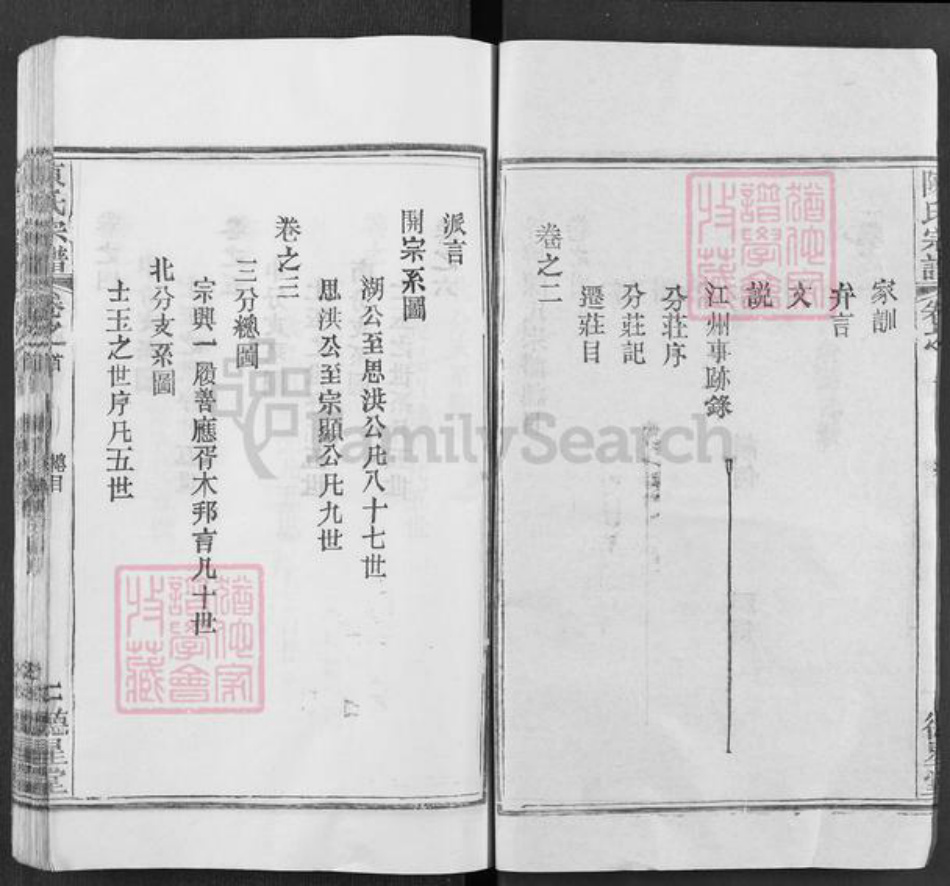 陳氏宗譜
家訓
弁言
文
說
江州事跡錄
分莊序
分莊記
遷莊目
卷之二
派言
開宗系圖
湖公至思洪公凡八十七世
思洪公至宗顯公凡九世
卷之三
三分總圖
宗興一履善應胥木邦育凡十世
北分支系圖
士玉之世序凡五世
陳氏宗譜
卷之首
總目
二
德星堂
FamilySearch